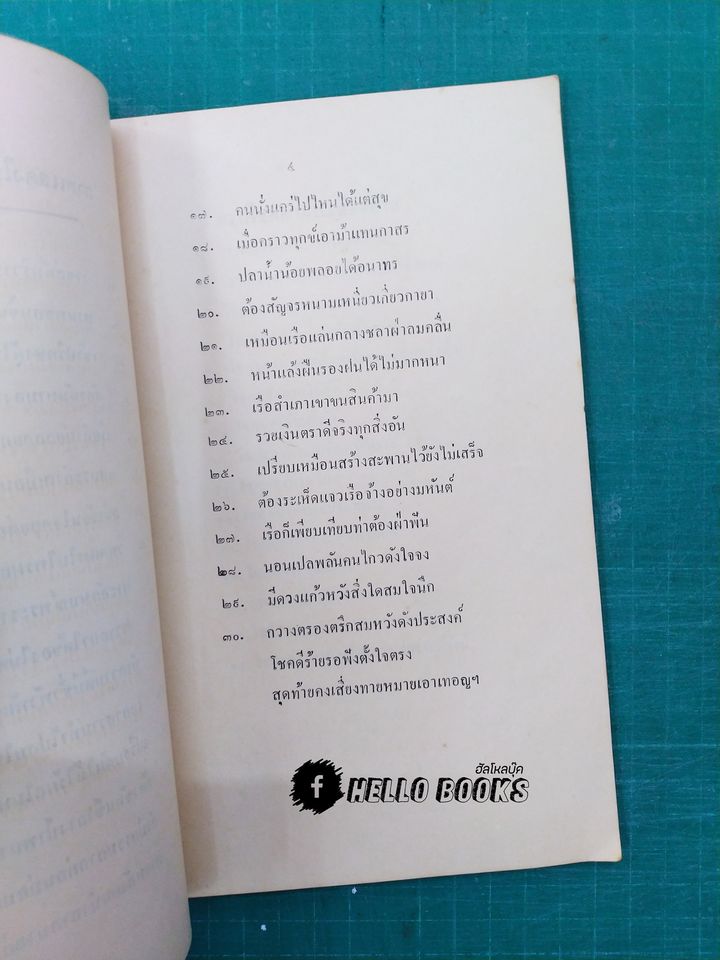 ๔
๑๗. คนนั่งแคร่ไปไหนได้แต่สุข
๑๘. เมื่อคราวทุกข์เอาม้าแทนกาสร
๑๙. ปลาน้ำน้อยพลอยได้อนาทร
๒๐. ต้องสัญจรหนามเหนี่ยวเกี่ยวกายา
๒๑. เหมือนเรือแล่นกลางชลาฝ่าลมคลื่น
๒๒. หน้าแล้งฝืนรองฝนได้ไม่มากหนา
๒๓. เรือสำเภาเขาขนสินค้ามา
๒๔. รวยเงินตราดีจริงทุกสิ่งอัน
๒๕. เปรียบเหมือนสร้างสะพานไว้ยังไม่เสร็จ
๒๖. ต้องระเห็ดแจวเรือจ้างอย่างมหันต์
๒๗. เรือก็เพียบเทียบท่าต้องฝ่าฟัน
๒๘. นอนเปลพลันคนไกวดังใจจง
๒๙. มีดวงแก้วหวังสิ่งใดสมใจนึก
๓๐. กวางตรองตรึกสมหวังดังประสงค์
โชคดีร้ายรอพึงตั้งใจตรง
สุดท้ายคงเสี่ยงทายหมายเอาเทอญฯ
ฮัลโหลบุ๊ค
f HELLO BOOKS